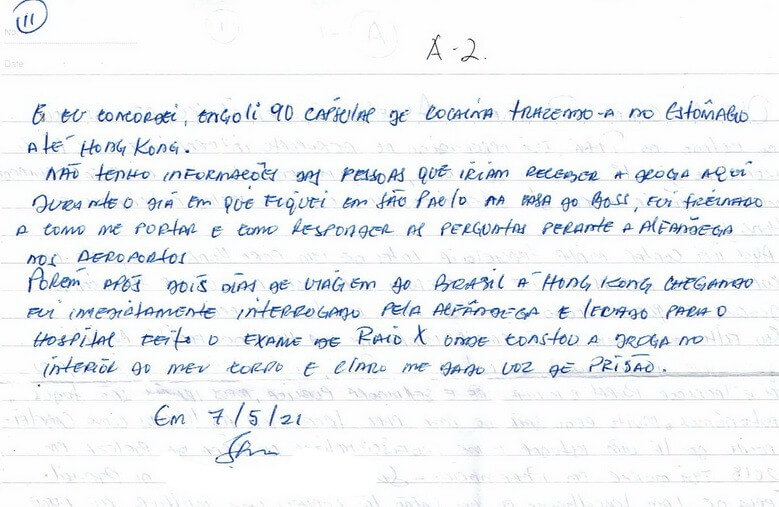 111
A-2.
E EU CONCORDEI, ENGOLI 90 CÁPSULAS DE COCAÍNA TRAZENDO-A NO ESTÔMAGO
ATÉ HONG KONG.
NÃO TENHO INFORMAÇÕES DAS PESSOAS QUE IRIAM RECEBER A DROGA AQUI
DURANTE O DIA EM QUE FIQUEI EM SÃO PAULO NA CASA DO BOSS, FUI TREINADO
A COMO ME PORTAR E COMO RESPONDER AS PERGUNTAS PERANTE A ALFÂNDEGA
NOS AEROPORTOS.
PORÉM APÓS DOIS DIAS DE VIAGEM DO BRASIL À HONG KONG CHEGANDO
FUI IMEDIATAMENTE INTERROGADO PELA ALFÂNDEGA E LEVADO PARA O
HOSPITAL FEITO O EXAME DE RAIO X ONDE CONSTOU A DROGA NO
INTERIOR DO MEU CORPO E CLARO ME DADO VOZ DE PRISÃO.
Em 7/5/21